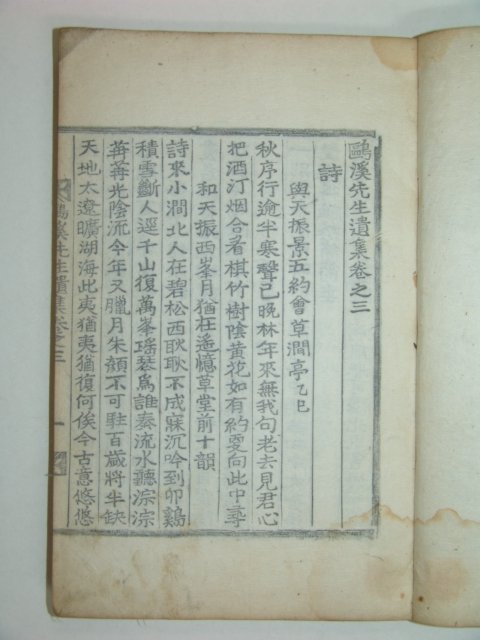 鷗溪先生遺集卷之三
詩
與天振景五約會草澗亭乙巳
秋序行逾半寒聲已晚林年來無我句老去見君心
把酒汀烟合看棋竹樹陰黃花如有約更向此中尋
和天振西峯月猶在遙憶草堂前十韻
詩來小澗北人在碧松西耿耿不成寐沉吟到卯鷄
積雪斷人逕千山復萬峯瑶琴爲誰奏流水聽淙淙
苒苒光陰流今年又臘月朱顏不可駐百歲將半缺
天地太遼曠湖海此夷猶夷猶復何俟今古意悠悠
鷗溪先生遺集卷之三 一